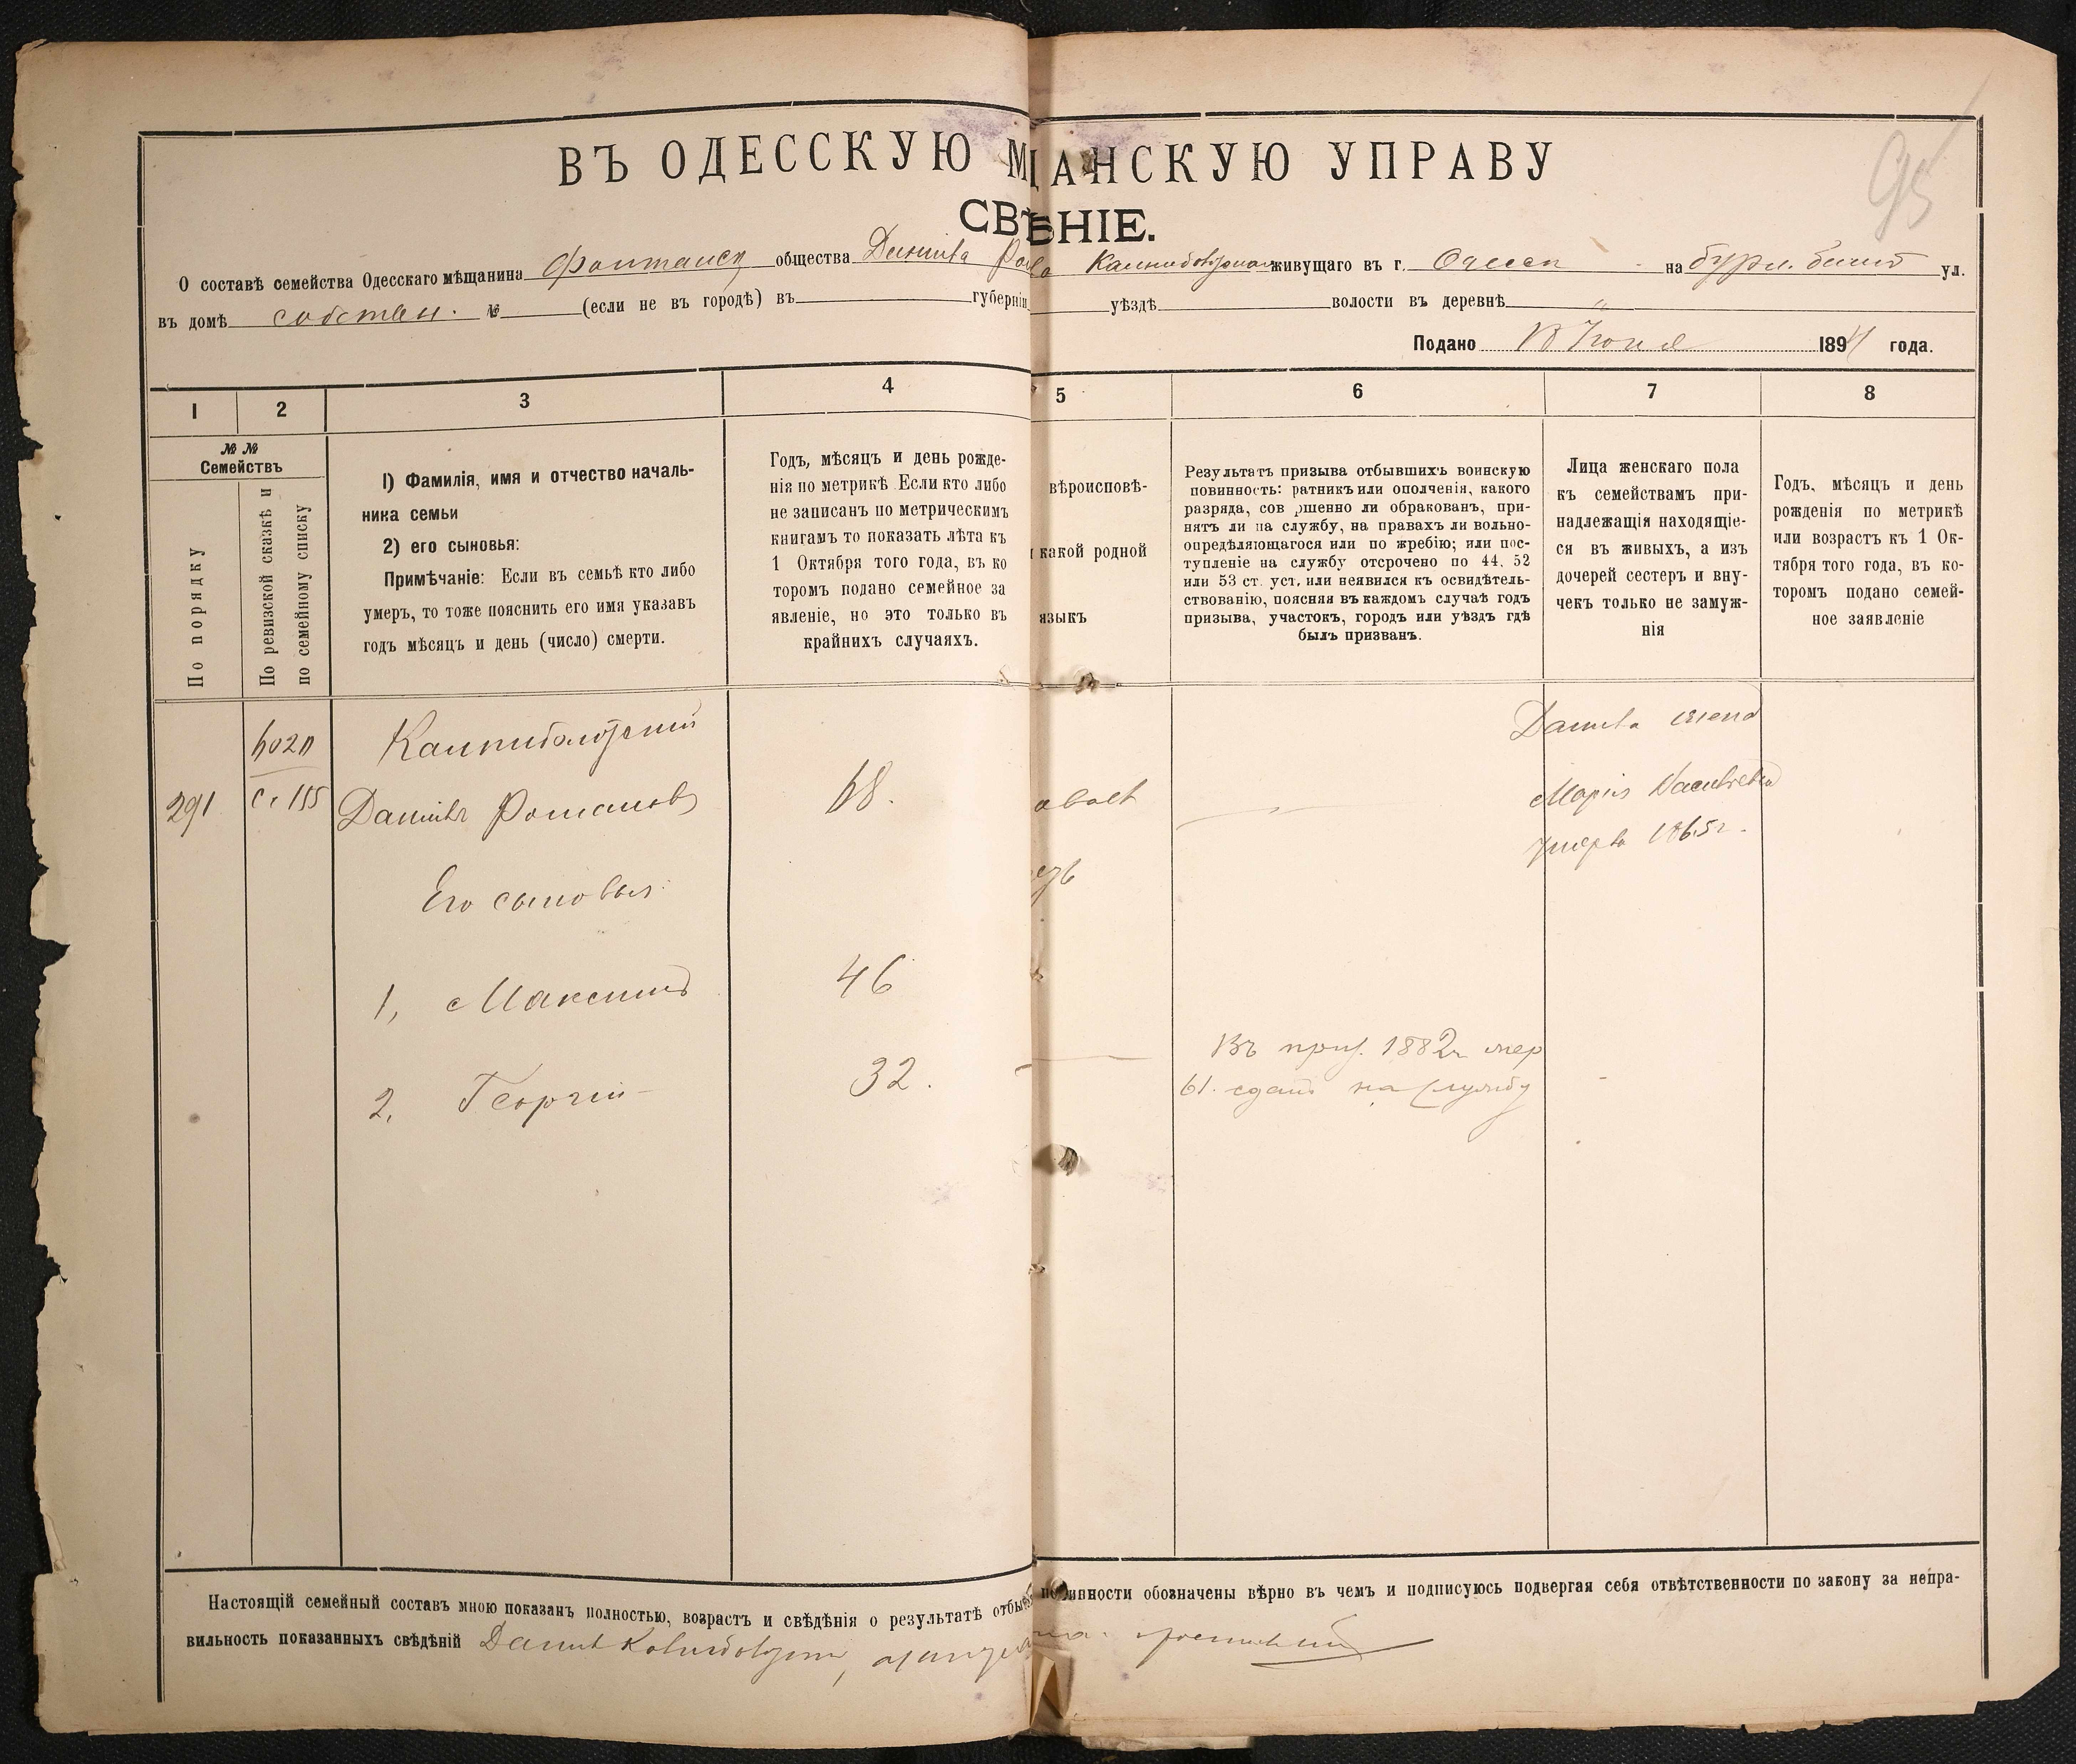 95
ВЪ ОДЕССКУЮ М ЩАНСКУЮ УПРАВУ
СВѢ НІЕ.
О составѣ семейства Одесскаго мѣщанина Фонтанск общества Данила живущаго въ г. Одессѣ на ул.
въ домѣ собствен. № (если не въ городѣ) въ губерніи уѣздѣ волости въ деревнѣ "
Подано Іюня 189 года.
1 2 3 4 5 6 7 8
№ №
Семействъ
По порядку
По ревизской сказкѣ и
по семейному списку
1) Фамилія, имя и отчество началь-
ника семьи
2) его сыновья:
Примѣчаніе: Если въ семьѣ кто либо
умеръ, то тоже пояснить его имя указавъ
годъ мѣсяцъ и день (число) смерти.
Годъ, мѣсяцъ и день рожде-
нія по метрикѣ Если кто либо
не записанъ по метрическимъ
книгамъ то показать лѣта къ
1 Октября того года, въ ко
торомъ подано семейное за
явленіе, но это только въ
крайнихъ случаяхъ.
вѣроисповѣ-
какой родной
языкъ
Результатъ призыва отбывшихъ воинскую
повинность: ратникъ или ополченія, какого
разряда, сов ршенно ли обракованъ, при-
нятъ ли на службу, на правахъ ли вольно-
опредѣляющагося или по жребію; или пос-
тупленіе на службу отсрочено по 44, 52
или 53 ст. уст, или неявился къ освидѣтель-
ствованію, поясняя въ каждомъ случаѣ годъ
призыва, участокъ, городъ или уѣздъ гдѣ
былъ призванъ.
Лица женскаго пола
къ семействамъ при-
надлежащія находящіе-
ся въ живыхъ, а изъ
дочерей сестеръ и вну-
чекъ только не замуж-
нія
Годъ, мѣсяцъ и день
рожденія по метрикѣ
или возрастъ къ 1 Ок-
тября того года, въ ко-
торомъ подано семей-
ное заявленіе
291
Данилъ Романовъ
68.
Данила жена
Марія
умерла 1865 г.
Его сыновья:
1, Максимъ
46
2. Георгій
32.
Въ приз. 1882 г. жер
61. сданъ на службу
Настоящій семейный составъ мною показанъ полностью, возрастъ и свѣдѣнія о результатѣ отбы повинности обозначены вѣрно въ чемъ и подписуюсь подвергая себя отвѣтственности по закону за непра-
вильность показанныхъ свѣдѣній Данилъ